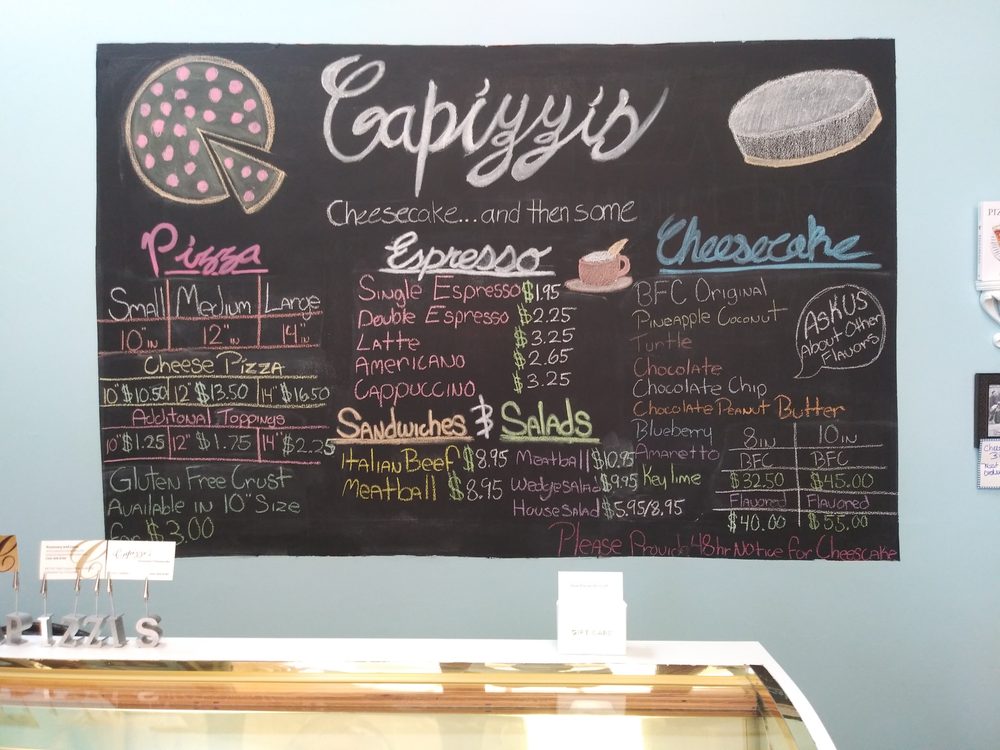 Capizzis
Cheesecake...and then some
Pizza
Small Medium Large
10"IN 12"IN 14"IN
Cheese Pizza
10" $10.50 12" $13.50 14" $16.50
Additonal Toppings
10" $1.25 12" $1.75 14" $2.25
Gluten Free Crust
Available in 10" Size
For $3.00
Espresso
Single Espresso $1.95
Double Espresso $2.25
Latte $3.25
Americano $2.65
Cappuccino $3.25
Sandwiches & Salads
Italian Beef $8.95
Meatball $8.95
Meatball $10.95
Wedge Salad $9.95
House Salad $5.95/8.95
Cheesecake
BFC Original
Pineapple Coconut
Turtle
Chocolate
Chocolate Chip
Chocolate Peanut Butter
Blueberry
Amaretto
Key lime
Ask Us
About Other
Flavors
8IN 10IN
BFC BFC
$32.50 $45.00
Flavored Flavored
$40.00 $55.00
Please Provide 48hr Notice for Cheescake
PIZZIS
GIFT CARD